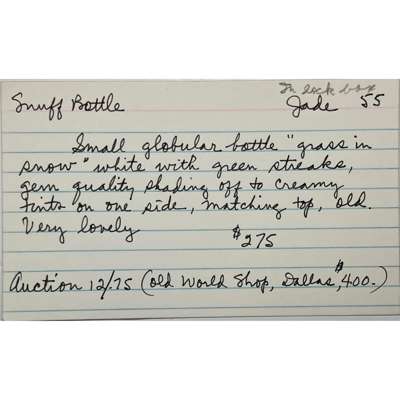 In lock box
Snuff Bottle Jade 55
Small globular bottle "grass in
snow" white with green streaks,
gem quality shading off to creamy
tints on one side, matching top, old.
Very lovely $275
Auction 12/75 (Old World Shop, Dallas, $400.)